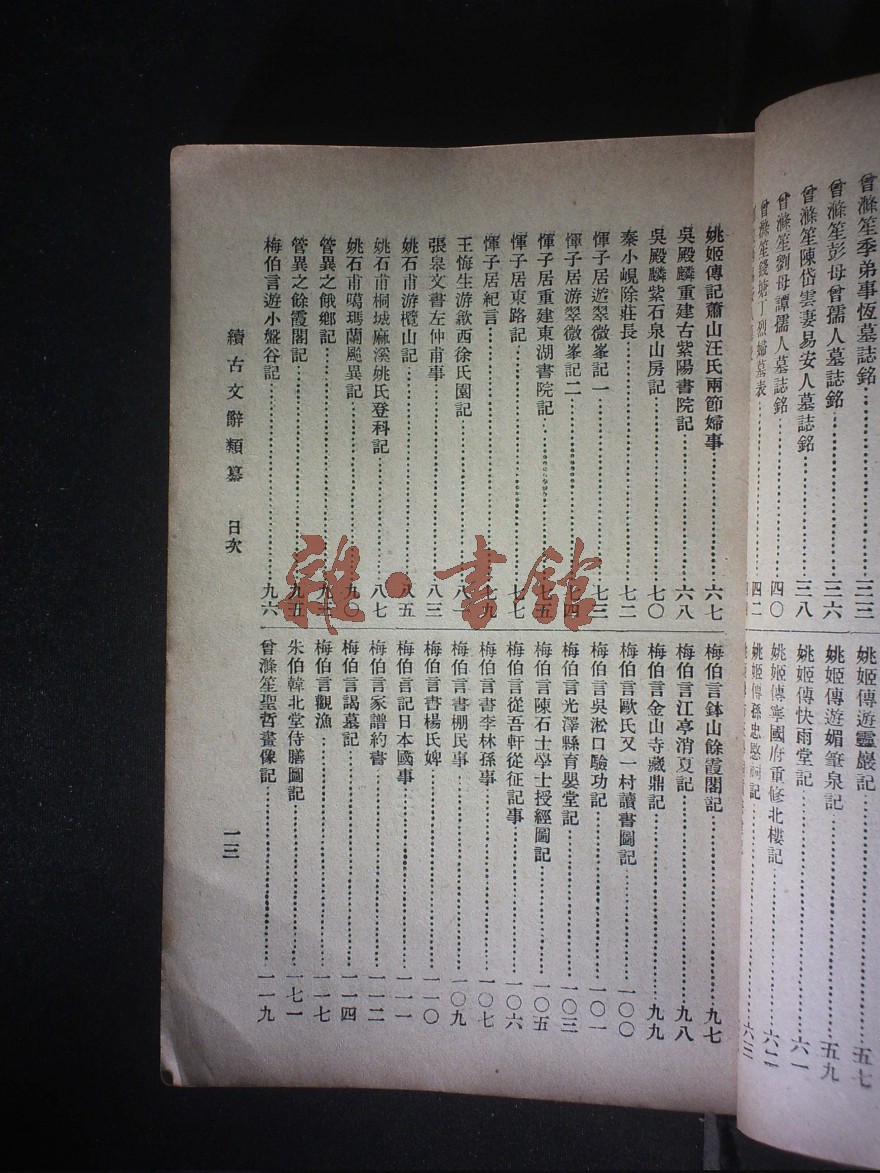 曾滌笙季弟事恆墓誌銘……三三
曾滌笙彭母曾孺人墓誌銘……三六
曾滌笙陳岱雲妻易安人墓誌銘……三八
曾滌笙劉母譚孺人墓誌銘……四〇
曾滌笙錢塘丁烈婦墓表……四二
姚姬傳遊靈巖記……五七
姚姬傳遊媚筆泉記……五九
姚姬傳快雨堂記……六一
姚姬傳寧國府重修北樓記……六二
姚姬傳孫忠愍祠記……六三
姚姬傳記蕭山汪氏兩節婦事……六七
吳殿麟重建古紫陽書院記……六八
吳殿麟紫石泉山房記……七〇
秦小峴除莊長……七二
惲子居遊翠微峯記一……七三
惲子居游翠微峯記二……七四
惲子居重建東湖書院記……七五
惲子居東路記……七七
惲子居紀言……七九
王悔生游歙西徐氏園記……八一
張皋文書左仲甫事……八三
姚石甫游欖山記……八五
姚石甫桐城麻溪姚氏登科記……八七
姚石甫噶瑪蘭颱異記……九〇
管異之餓鄉記……九三
管異之餘霞閣記……九五
梅伯言遊小盤谷記……九六
梅伯言鉢山餘霞閣記……九七
梅伯言江亭消夏記……九八
梅伯言金山寺藏鼎記……九九
梅伯言歐氏又一村讀書圖記……一〇〇
梅伯言吳淞口驗功記……一〇一
梅伯言光澤縣育嬰堂記……一〇三
梅伯言陳石士學士授經圖記……一〇五
梅伯言從吾軒從征記事……一〇六
梅伯言書李林孫事……一〇七
梅伯言書棚民事……一〇九
梅伯言書楊氏婢……一一〇
梅伯言記日本國事……一一一
梅伯言家譜約書……一一二
梅伯言謁墓記……一一四
梅伯言觀漁……一一七
朱伯韓北堂侍膳圖記……一七一
曾滌笙聖哲畫像記……一一九
續古文辭類纂　目次
一三
雜·書館